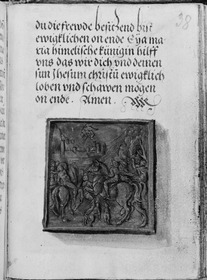 38
du die frewde besitzend bist
ewigklichen on ende Eya ma
ria himelische künigin hilff
vns das wir dich vnd deinen
sun Jhesum christū ewigklich
loben vnd schawen mögen
on ende · Amen ·